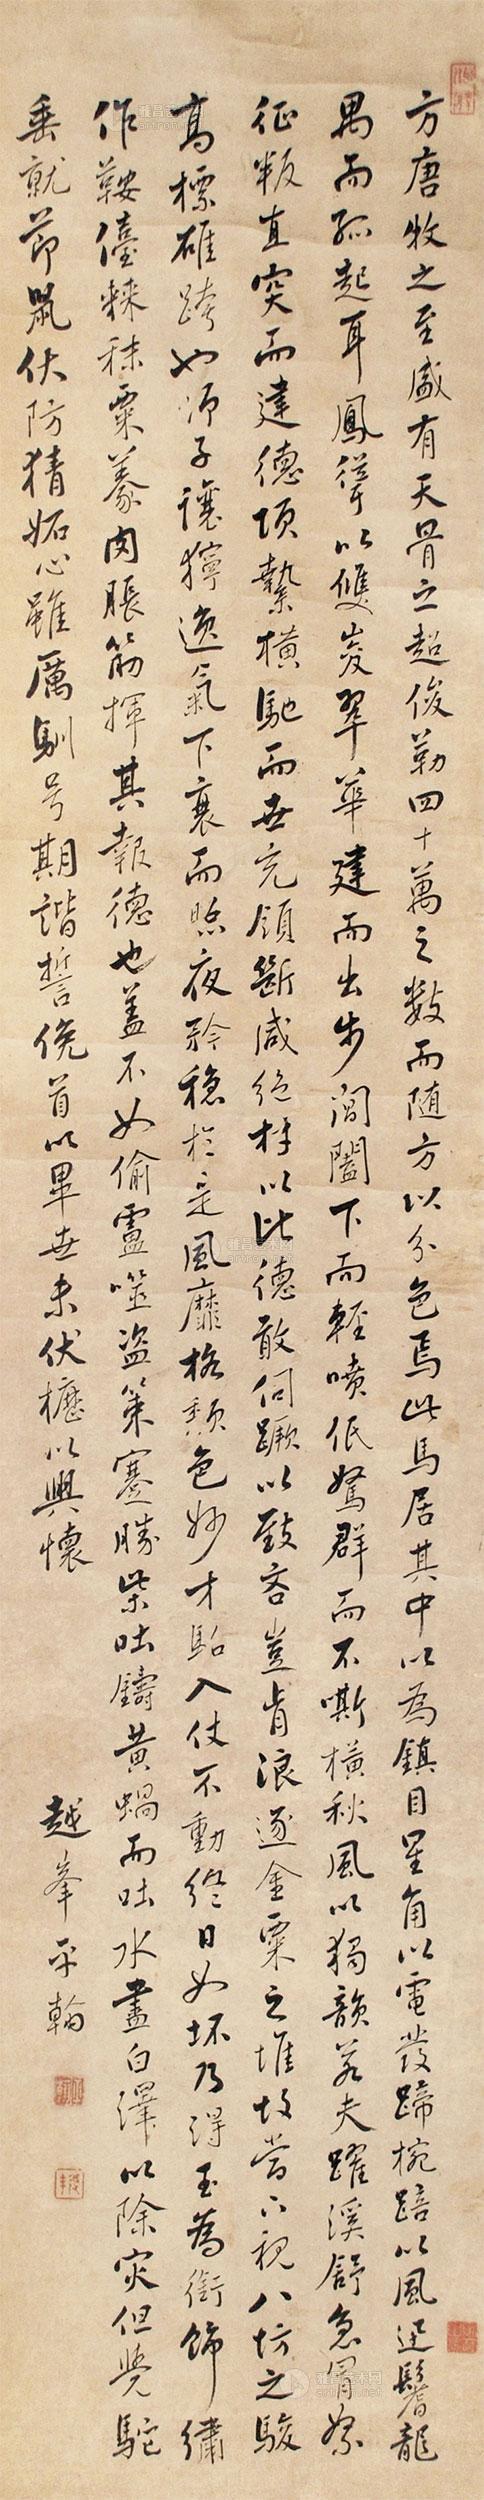 方唐牧之至盛有天骨之超俊勒四十萬之數而随方以分色焉此馬居其中以為鎮目星角以電發蹄椀踣以風迅鬐龍
禺而孤起耳鳳聳以雙峻翠華建而出步閶闔下而輕噴低駑群而不嘶橫秋風以獨韻若夫躍溪舒急冒絮
征叛直突而建德項縶橫馳而世充領斷咸絕材以比德敢伺蹶以致吝豈肯浪逐金粟之堆故當下視八坊之駿
髙標雄跨也獅子讓獰逸氣下衰而照夜矜穏於是風靡格頹色妙才駘入仗不動終日如坏乃得玉為銜飾繡
作鞍儓棘秣粟豢肉脹筋揮其報德也盖不如偷盧噬盜策蹇勝柴吐鑄黄蝸而吐水畫白澤以除灾但覺駝
垂就節鼠伏防猜妬心雖厲馴号期諧誓俛首以畢世未伏櫪以興懷
越峯平翰